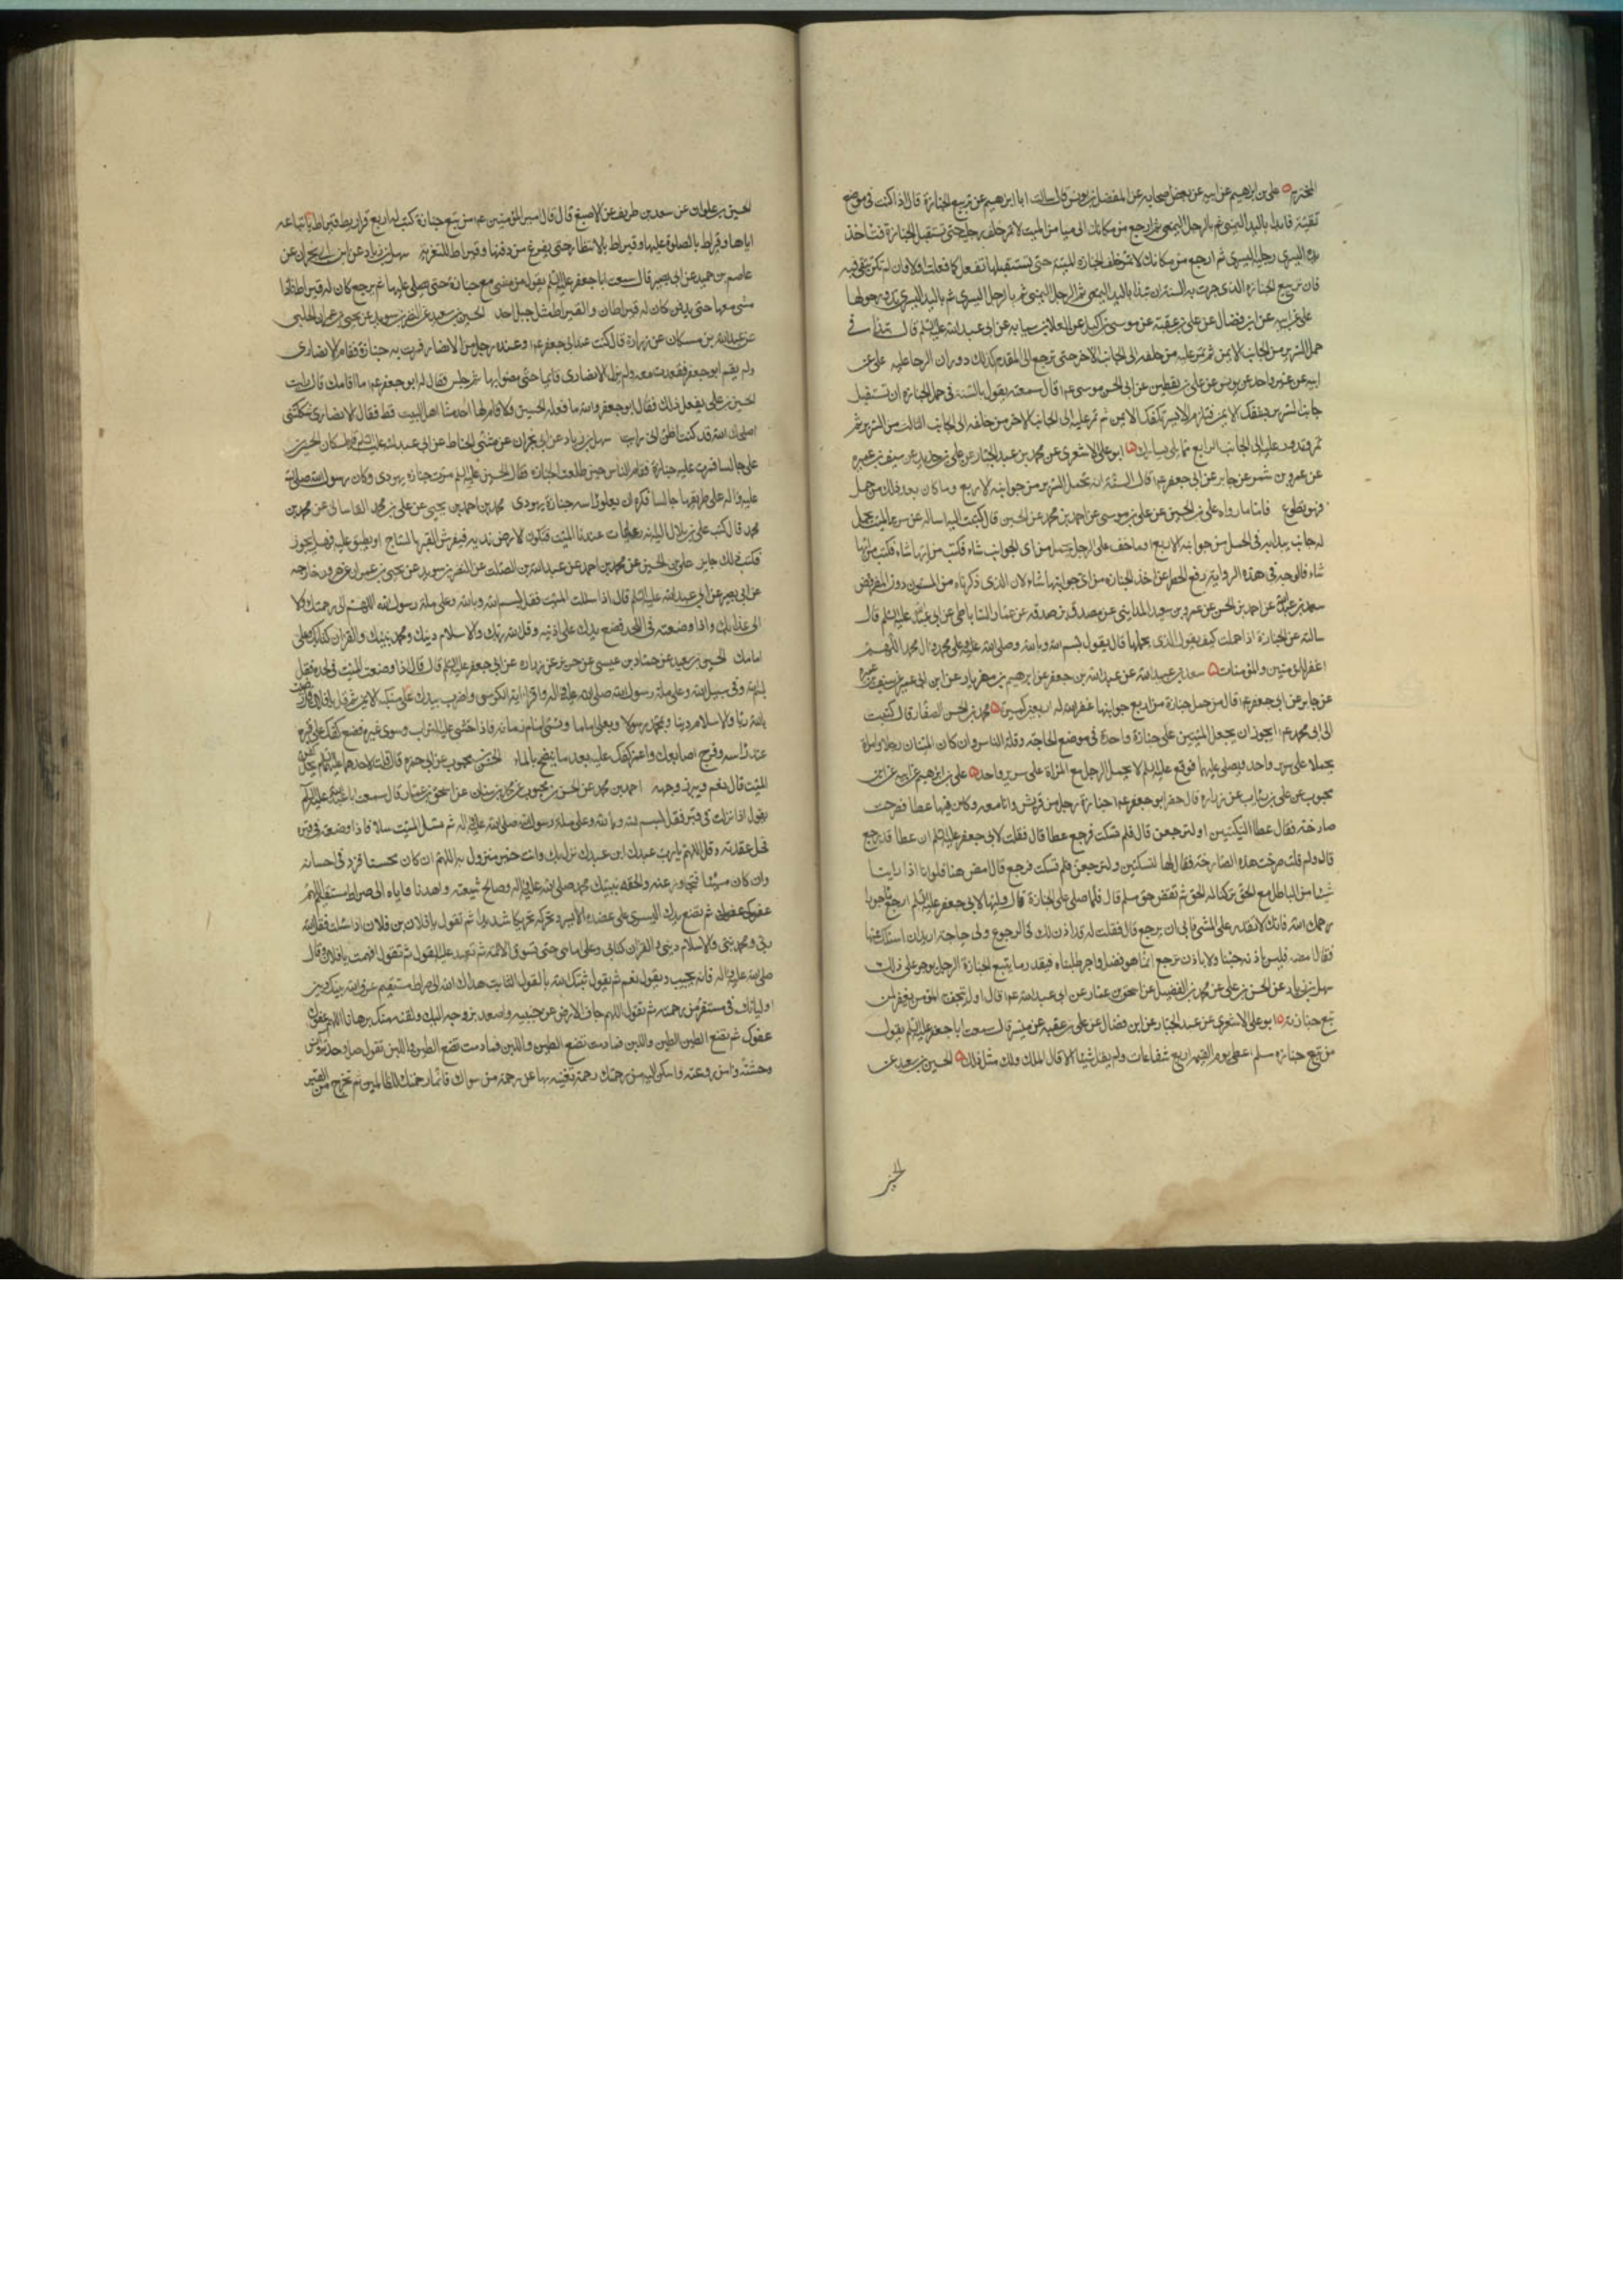 علي بن ابرهيم عن ابيه عن بعض اصحابه عن الفضل بن يونس قال سالت ابا ابرهيم عن تربيع الجنازة قال اذا كنت في موضع
تقية فابدا باليد اليمنى ثم بالرجل اليمنى ثم ارجع من مكانك الى ميامن الميت لا تمر خلف رجليه حتى تستقبل الجنازة فتاخذ
يده اليسرى ثم رجله اليسرى ثم ارجع من مكانك لا تمر خلف الجنازة البتة حتى تستقبلها تفعل كما فعلت اولا فان لم تكن تتقي فيه
فان تربيع الجنازه الذي جرت به السنة ان تبدا باليد اليمنى ثم بالرجل اليمنى ثم بالرجل اليسرى ثم باليد اليسرى تدور حولها
علي عن ابيه عن ابن فضال عن علي بن عقبة عن موسى بن اكيل عن العلا بن سيابه عن ابي عبد الله عليه السلم قال تبدا في
حمل السرير من الجانب الايمن ثم تمر عليه من خلفه الى الجانب الاخر حتى ترجع الى المقدم كذلك دوران الرحا عليه علي عن
ابيه عن غير واحد عن يونس عن علي بن يقطين عن ابي الحسن موسى ع قال سمعته يقول السنة في حمل الجنازة ان تستقبل
جانب السرير بشقك الايمن فتلزم الايسر بكفك الايمن ثم تمر عليه الى الجانب الاخر من خلفه الى الجانب الثالث من السرير ثم
تمر عليه الى الجانب الرابع مما يلي يسارك ابو علي الاشعري عن محمد بن عبد الجبار عن علي بن حديد عن سيف بن عميره
عن عمرو بن شمر عن جابر عن ابي جعفر ع قال السنة ان تحمل السرير من جوانبه الاربع وما كان بعد ذلك من حمل
فهو تطوع فاما ما رواه علي بن الحسين عن علي بن موسى عن احمد بن محمد عن الحسين قال كتبت اليه اساله عن سرير الميت يحمل
له جانب يبدا به في الحمل من جوانبه الاربع او ما خف على الرجل يحمل من اي الجوانب شاء فكتب من ايها شاء
شاء فالوجه في هذه الرواية رفع الحظر عن اخذ الجنازه من اي جوانبها شاء لان الذي ذكرناه من المسنون دون المفروض
سعد بن عبد الله عن احمد بن الحسن عن عمرو بن سعيد المدايني عن مصدق بن صدقه عن عمار الساباطي عن ابي عبد الله عليه السلم قال
سالته عن الجنازة اذا حملت كيف يقول الذي يحملها قال يقول بسم الله وبالله وصلى الله على محمد وال محمد اللهم
اغفر للمؤمنين والمؤمنات سعد بن عبد الله عن عبد الله بن جعفر عن ابرهيم بن مهزيار عن ابن ابي عمير عن سيف بن عميره
عن جابر عن ابي جعفر ع قال من حمل جنازة من اربع جوانبها غفر الله له اربعين كبيرة محمد بن الحسن الصفار قال كتبت
الى ابي محمد ع ايجوز ان يجعل الميتين على جنازة واحدة في موضع الحاجة وقلة الناس وان كان الميتان رجلا وامراة
يحملا على سرير واحد ويصلى عليهما فوقع عليه السلم لا يحمل الرجل مع المراة على سرير واحد علي بن ابرهيم عن ابيه عن ابن
محبوب عن علي بن رئاب عن زراره قال حضر ابو جعفر ع جنازة رجل من قريش وانا معه وكان فيها عطا فصرخت
صارخة فقال عطا لتسكتين او لنرجعن قال فلم تسكت فرجع عطا قال فقلت لابي جعفر عليه السلم ان عطا قد رجع
قال ولم قلت صرخت هذه الصارخة فقال لها لتسكتين او لنرجعن فلم تسكت فرجع قال امض بنا فلو انا اذا راينا
شيئا من الباطل مع الحق تركنا له الحق لم نقض حق مسلم قال فلما صلى على الجنازة قال وليها لابي جعفر عليه السلم ارجع ماجورا
رحمك الله فانك لا تقدر على المشي فابى ان يرجع قال فقلت له قد اذن لك في الرجوع ولي حاجة اريد ان اسئلك عنها
فقال امضه فليس باذنه جئنا ولا باذنه نرجع انما هو فضل واجر طلبناه فبقدر ما يتبع الجنازة الرجل يوجر على ذلك
سهل بن زياد عن الحسن بن علي عن محمد بن الفضيل عن اسحق بن عمار عن ابي عبد الله ع قال اول ما يتحف المؤمن يغفر لمن
تبع جنازته ابو علي الاشعري عن محمد بن عبد الجبار عن ابن فضال عن علي بن عقبه عن ميسر قال سمعت ابا جعفر عليه السلم يقول
من تبع جنازه مسلم اعطى يوم القيمة اربع شفاعات ولم يقل شيئا الا قال الملك ولك مثل ذلك الحسين بن سعيد عن
الحسين بن علوان عن سعد بن طريف عن الاصبغ قال قال امير المؤمنين ع من تبع جنازة كتب له اربع قراريط قيراط باتباعه
اياها وقيراط بالصلوة عليها وقيراط بالانتظار حتى يفرغ من دفنها وقيراط للتعزية سهل بن زياد عن ابن ابي نجران عن
عاصم بن حميد عن ابي بصير قال سمعت ابا جعفر عليه السلم يقول من مشى مع جنازة حتى يصلى عليها ثم رجع كان له قيراط فاذا
مشى معها حتى يدفن كان له قيراطان والقيراط مثل جبل احد الحسين بن سعيد عن النضر بن سويد عن يحيى بن عمران الحلبي
عن عبد الله بن مسكان عن زرارة قال كنت عند ابي جعفر ع وعنده رجل من الانصار فمرت به جنازة فقام الانصاري
ولم يقم ابو جعفر فقعدت معه ولم يزل الانصاري قائما حتى مضوا بها ثم جلس فقال له ابو جعفر ع ما اقامك قال رايت
الحسين بن علي يفعل ذلك فقال ابو جعفر والله ما فعله الحسين ولا قام لها احد منا اهل البيت قط فقال الانصاري شككتني
اصلحك الله قد كنت اظن اني رايت سهل بن زياد عن ابن ابي نجران عن مثنى الحناط عن ابي عبد الله عليه السلم قال كان الحسين بن
علي جالسا فمرت عليه جنازة فقام الناس حين طلعت الجنازه فقال الحسين عليه السلم مرت جنازه يهودي وكان رسول الله صلى الله
عليه واله على طريقها جالسا فكره ان يعلو راسه جنازة يهودي محمد بن احمد بن يحيى عن علي بن محمد القاساني عن محمد بن
محمد قال كتب علي بن بلال اليه انه ربما مات عندنا الميت فتكون الارض نديه فيفرش القبر بالساج او يطبق عليه فهل يجوز
فكتب ذلك جايز علي بن الحسين عن محمد بن احمد عن عبد الله بن الصلت عن النضر بن سويد عن يحيى بن عمران عن هرون بن خارجه
عن ابي بصير عن ابي عبد الله عليه السلم قال اذا سللت الميت فقل بسم الله وبالله وعلى ملة رسول الله اللهم الى رحمتك لا
الى عذابك واذا وضعته في اللحد فضع يدك على اذنيه وقل الله ربك والاسلام دينك ومحمد نبيك والقران كتابك وعلي
امامك الحسين بن سعيد عن حماد بن عيسى عن حريز عن زراره عن ابي جعفر عليه السلم قال قال اذا وضعت الميت في لحده فقل
بسم الله وفي سبيل الله وعلى ملة رسول الله صلى الله عليه واله واقرا اية الكرسي واضرب بيدك على منكبه الايمن ثم قل يا فلان قل رضيت
بالله ربا والاسلام دينا وبمحمد رسولا وبعلي اماما وتسمي امام زمانه فاذا حثي عليه التراب وسوي قبره فضع كفك على قبره
عند راسه وفرج اصابعك واغمز كفك عليه بعد ما ينضح بالماء الحسن بن محبوب عن ابي حمزه قال قلت لاحدهما عليهما السلم يحل كفن
الميت قال نعم ويبرز وجهه احمد بن محمد عن الحسن بن محبوب عن محمد بن سنان عن اسحق بن عمار قال سمعت ابا عبد الله عليه السلم
يقول اذا نزلت في قبر فقل بسم الله وبالله وعلى ملة رسول الله صلى الله عليه واله ثم تسل الميت سلا فاذا وضعته في قبره
فحل عقدته وقل اللهم يارب عبدك ابن عبدك نزل بك وانت خير منزول به اللهم ان كان محسنا فزد في احسانه
وان كان مسيئا فتجاوز عنه والحقه بنبيك محمد صلى الله عليه واله وصالح شيعته واهدنا واياه الى صراط مستقيم اللهم
عفوك عفوك ثم تضع يدك اليسرى على عضده الايسر وتحركه تحريكا شديدا ثم تقول يا فلان بن فلان اذا سئلت فقل الله
ربي ومحمد نبيي والاسلام ديني والقران كتابي وعلي امامي حتى تسوق الائمة ثم تعيد عليه القول ثم تقول افهمت يا فلان وقال
صلى الله عليه واله فانه يجيب ويقول نعم ثم يقول ثبتك الله بالقول الثابت هداك الله الى صراط مستقيم عرف الله بينك وبين
اوليائك في مستقر من رحمته ثم تقول اللهم جاف الارض عن جنبيه واصعد بروحه اليك ولقنه منك برهانا اللهم عفوك
عفوك ثم تضع الطين واللبن فما دمت تضع الطين واللبن تقول اللهم صل وحدته وانس
وحشته وامن روعته واسكن اليه من رحمتك رحمة تغنيه بها عن رحمة من سواك فانما رحمتك للظالمين ثم تخرج من القبر